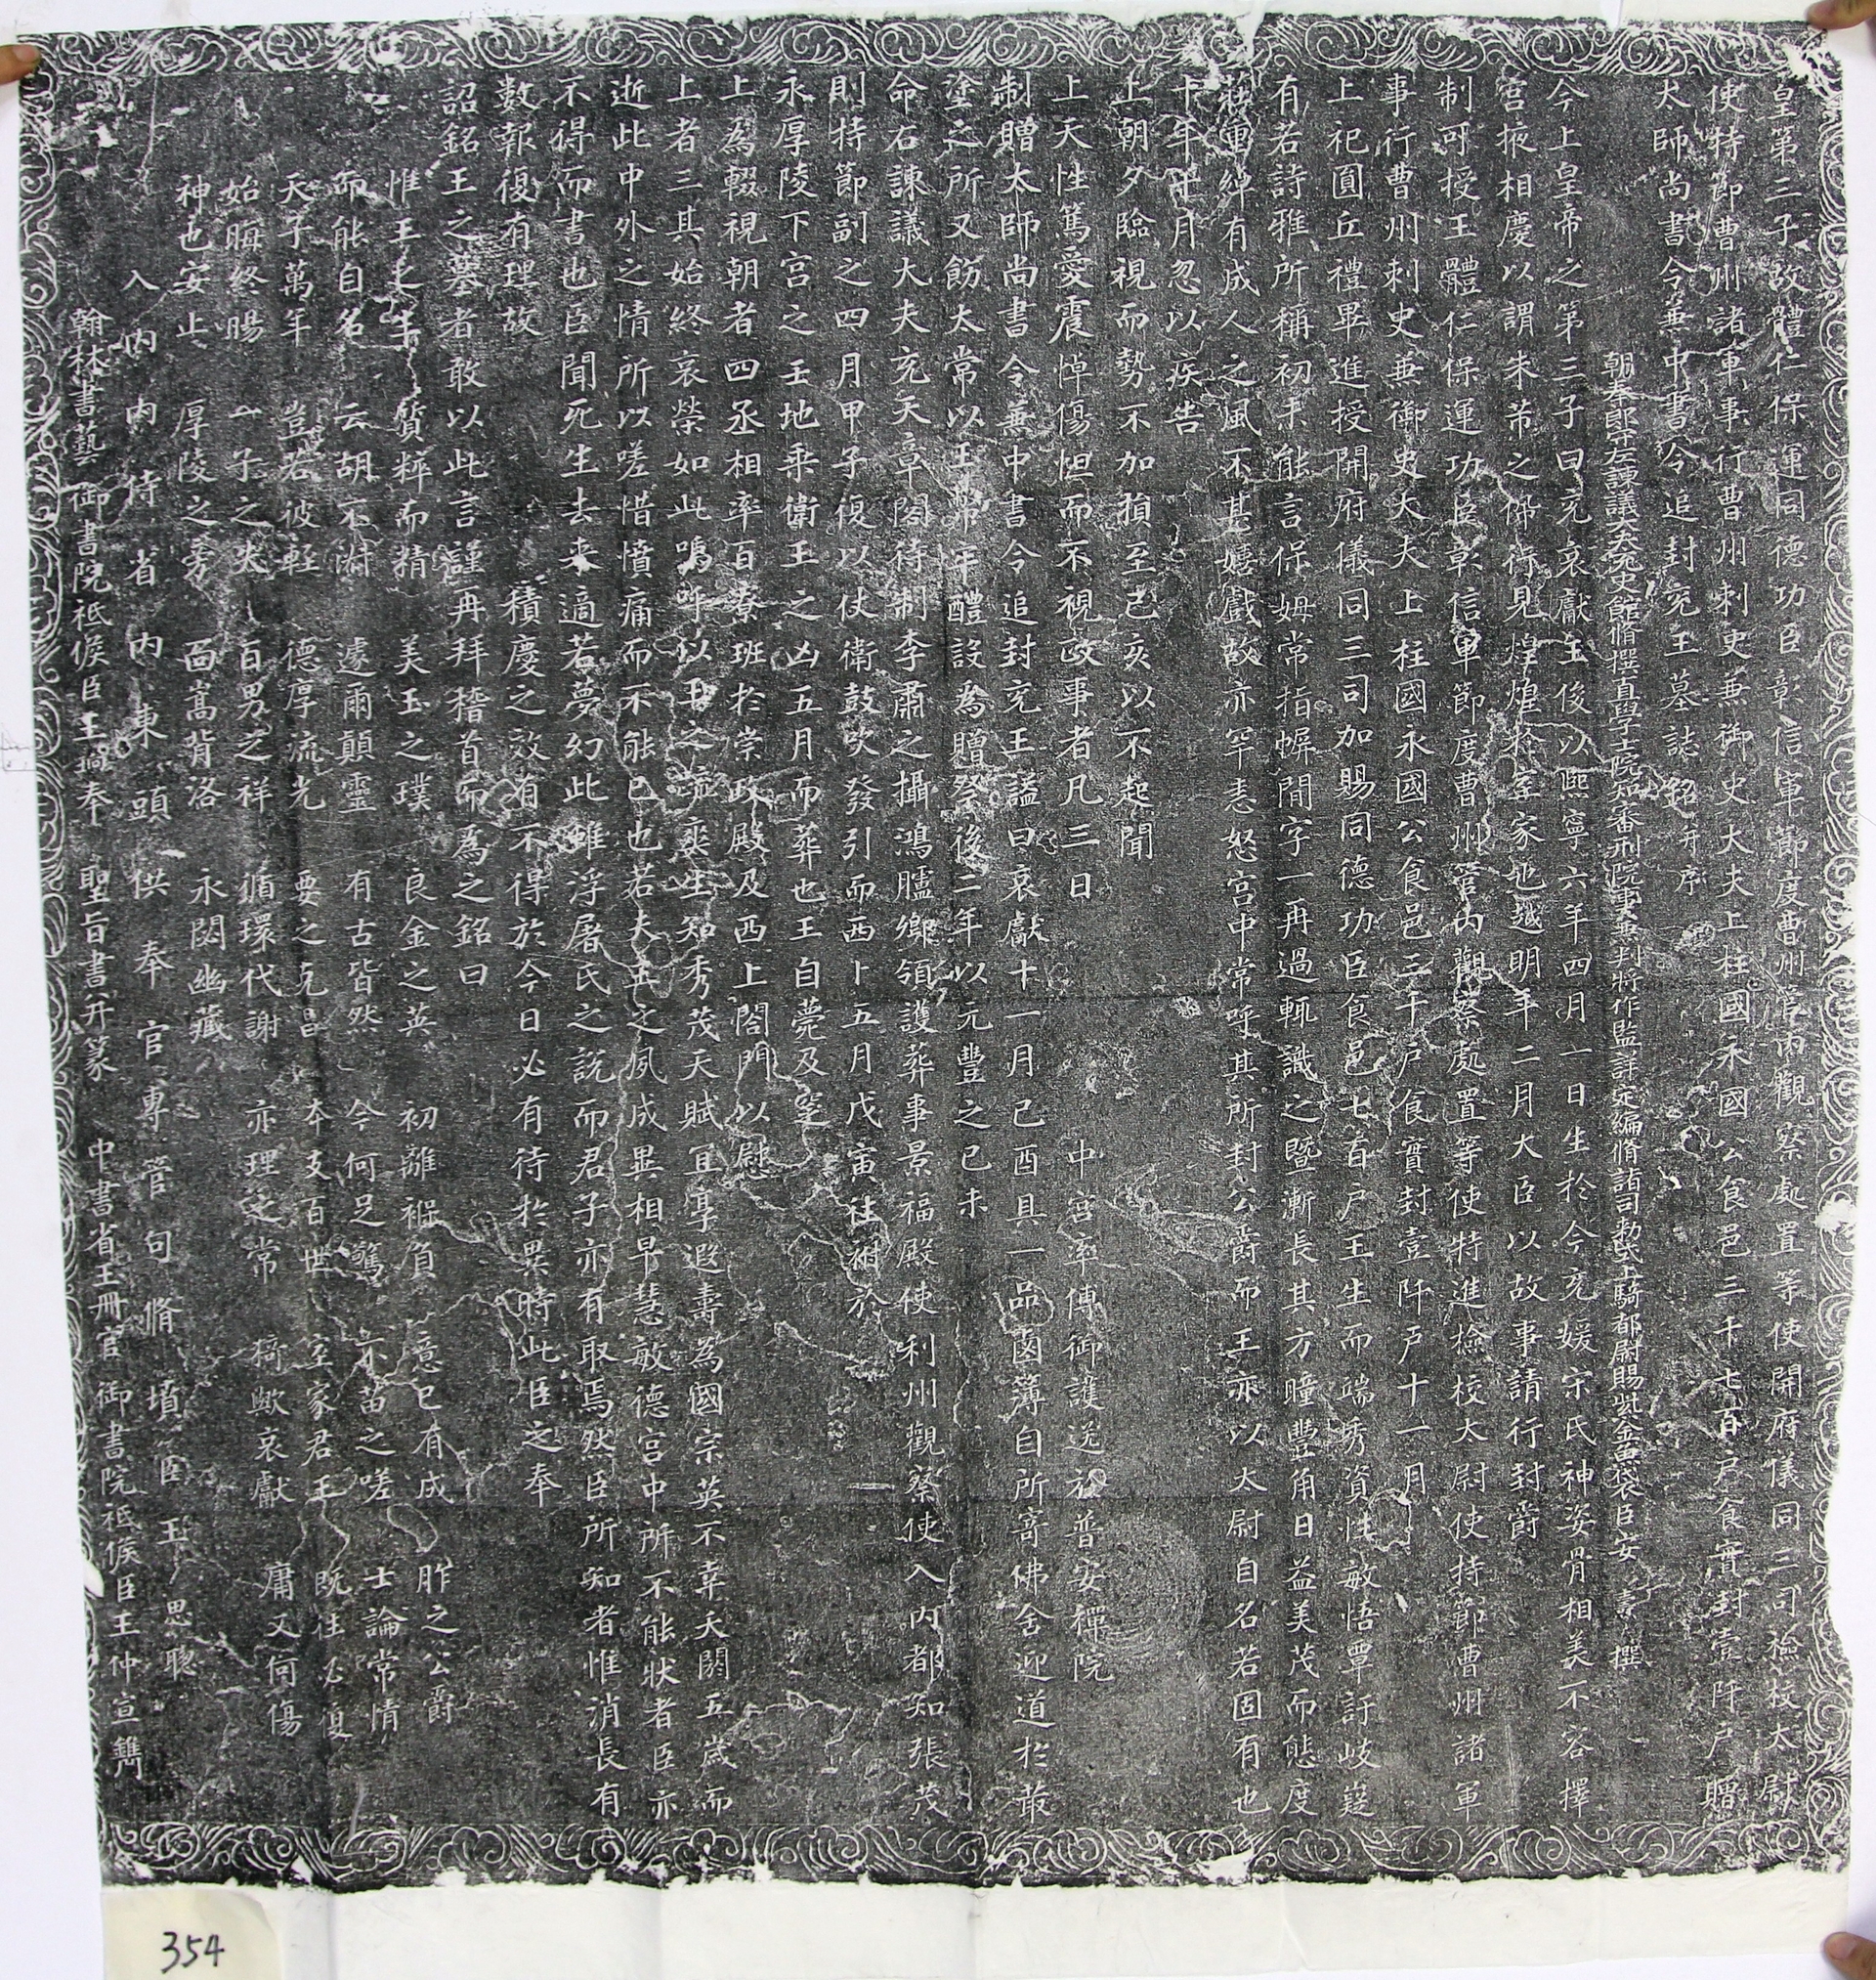 皇第三子故體仁保運同德功臣彰信軍節度曹州管內觀察處置等使開府儀同三司檢校太尉
使持節曹州諸軍事行曹州刺史兼御史大夫上柱國永國公食邑三千七百戶食實封壹阡戶贈
太師尚書令兼中書令追封兗王墓誌銘并序
朝奉郎守左諫議大夫充史館脩撰直學士院知審刑院事兼判將作監詳定編脩諸司勑式上騎都尉賜紫金魚袋臣安燾撰
今上皇帝之第三子曰兗哀獻王俊以熙寧六年四月一日生於今充媛宋氏神姿骨相美不容擇
宮掖相慶以謂朱芾之祥見煌煌於室家也越明年二月大臣以故事請行封爵
制可授王體仁保運功臣彰信軍節度曹州管內觀察處置等使特進檢校太尉使持節曹州諸軍
事行曹州刺史兼御史大夫上柱國永國公食邑三千戶食實封壹阡戶十一月
上祀圓丘禮畢進授開府儀同三司加賜同德功臣食邑七百戶王生而端秀資性敏悟覃訏岐嶷
有若詩雅所稱初未能言保姆常指幈閒字一再過輒識之暨漸長其方瞳豐角日益美茂而態度
莊重綽有成人之風不甚嬉戲故亦罕恚怒宮中常呼其所封公爵而王亦以太尉自名若固有也
十年十月忽以疾告
上朝夕臨視而勢不加損至己亥以不起聞
上天性篤愛震悼傷怛而不視政事者凡三日 中宮率傅御護送於普安禪院
制贈太師尚書令兼中書令追封兗王謚曰哀獻十一月己酉具一品鹵簿自所寄佛舍迎道於菆
塗之所又飭太常以王常年醴設為贈祭後二年以元豐之己未
命右諫議大夫充天章閣待制李肅之攝鴻臚卿領護葬事景福殿使利州觀察使入內都知張茂
則持節副之四月甲子復以仗衛鼓吹發引而西卜五月戊寅往祔於
永厚陵下宮之壬地乘衛王之凶五月而葬也王自薨及窆
上為輟視朝者四丞相率百寮班於崇政殿及西上閤門以慰
上者三其始終哀榮如此嗚呼以王之流爽生知秀茂天賦宜享遐壽為國宗英不幸夭閼五歲而
逝此中外之情所以嗟惜憤痛而不能已也若夫王之夙成異相早慧敏德宮中所不能狀者臣亦
不得而書也臣聞死生去來適若夢幻此雖浮屠氏之說而君子亦有取焉然臣所知者惟消長有
數報復有理故 積慶之效有不得於今日必有待於異時此臣之奉
詔銘王之墓者敢以此言謹再拜稽首而為之銘曰
惟王之生 質粹而精 美玉之璞 良金之英 初離襁負 意已有成 胙之公爵
而能自名 云胡不淑 遽爾顛靈 有古皆然 今何足驚 不苗之嗟 士論常情
天子萬年 豈若彼輕 德厚流光 要之克昌 本支百世 室家君王 既往必復
始晦終暘 一子之失 百男之祥 循環代謝 亦理之常 猗歟哀獻 庸又何傷
神也安止 厚陵之旁 面嵩背洛 永閟幽藏
入內內侍省內東頭供奉官專管句脩墳臣王思聰
翰林書藝御書院祗候臣王 奉 聖旨書并篆 中書省玉冊官御書院祗候臣王仲宣鐫
354